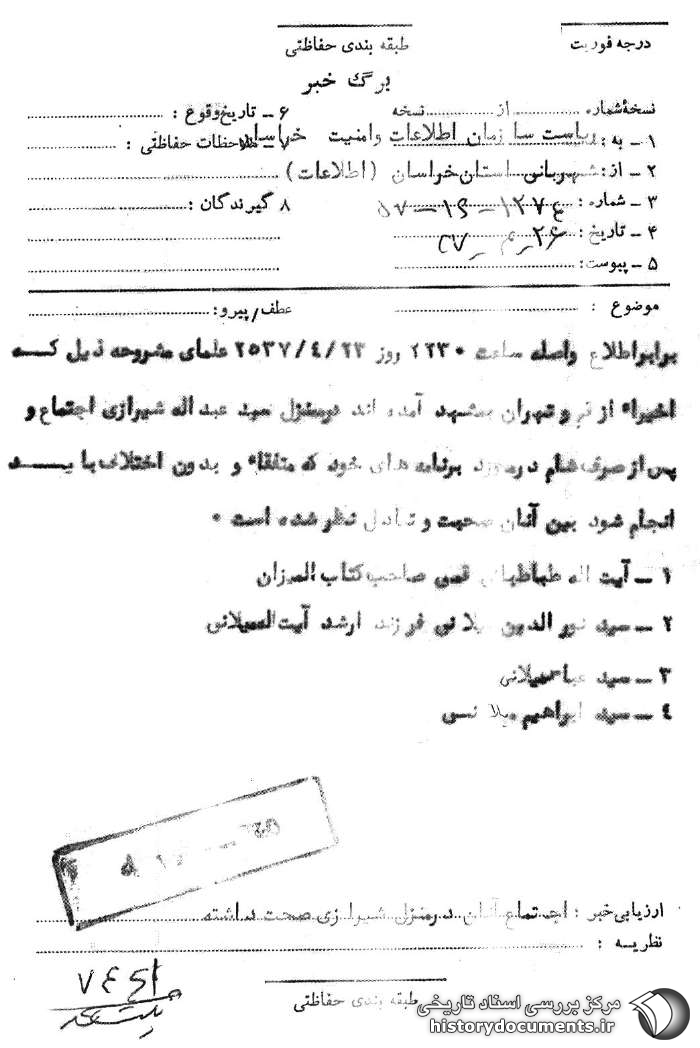 درجه فوریت
طبقه بندی حفاظتی
برگ خبر
نسخهٔ شماره از نسخه
۱ ـ به: ریاست سازمان اطلاعات وامنیت خراسان
۲ ـ از: شهربانی استان خراسان (اطلاعات)
۳ ـ شماره:
۴ ـ تاریخ:
۵ ـ پیوست:
۶ ـ تاریخ وقوع :
۷ ـ ملاحظات حفاظتی :
۸ گیرندگان :
موضوع :
عطف/پیرو:
برابر اطلاع واصله ساعت ۲۲۳۰ روز ۲۵۳۷/۴/۲۳ علمای مشروحه ذیل کــه
اخیرا" از قم و تهران بمشهد آمده اند درمنزل سید عبداله شیرازی اجتماع و
پس از صرف شام درمورد برنامه های خود که متفقا" و بدون اختلاف بایــد
انجام شود بین آنان صحبت و تبادل نظر شده است ۰
۱ ـ آیت اله طباطبائی قمی صاحب کتاب المیزان
۲ ـ سید نورالدین میلانی فرزند ارشد آیت اله میلانی
۳ ـ سید عباس میلانی
۴ ـ سید ابراهیم میلانی
ارزیابی خبر : اجتماع آنان درمنزل شیرازی صحت داشته
نظریه :
طبقه بندی حفاظتی
مرکز بررسی اسناد تاریخی
historydocuments.ir